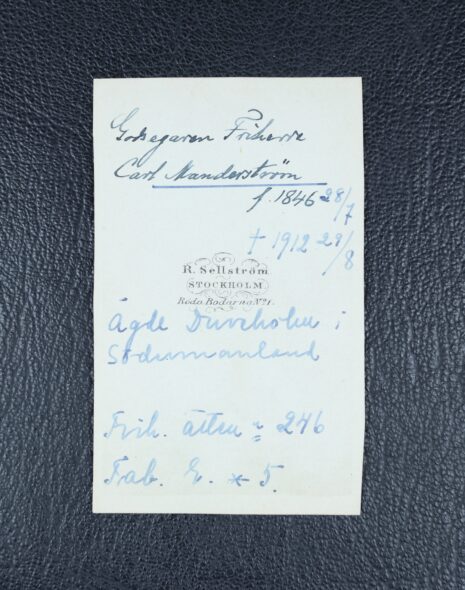 Godsegaren Friherre
Carl Manderström
f. 1846 28/7
† 1912 29/8
R. Sellström
STOCKHOLM
Röda Bodarna No 1.
Ägde Duveholm i
Södermanland
Frih. ätten n 246
Tab. 2. * 5.